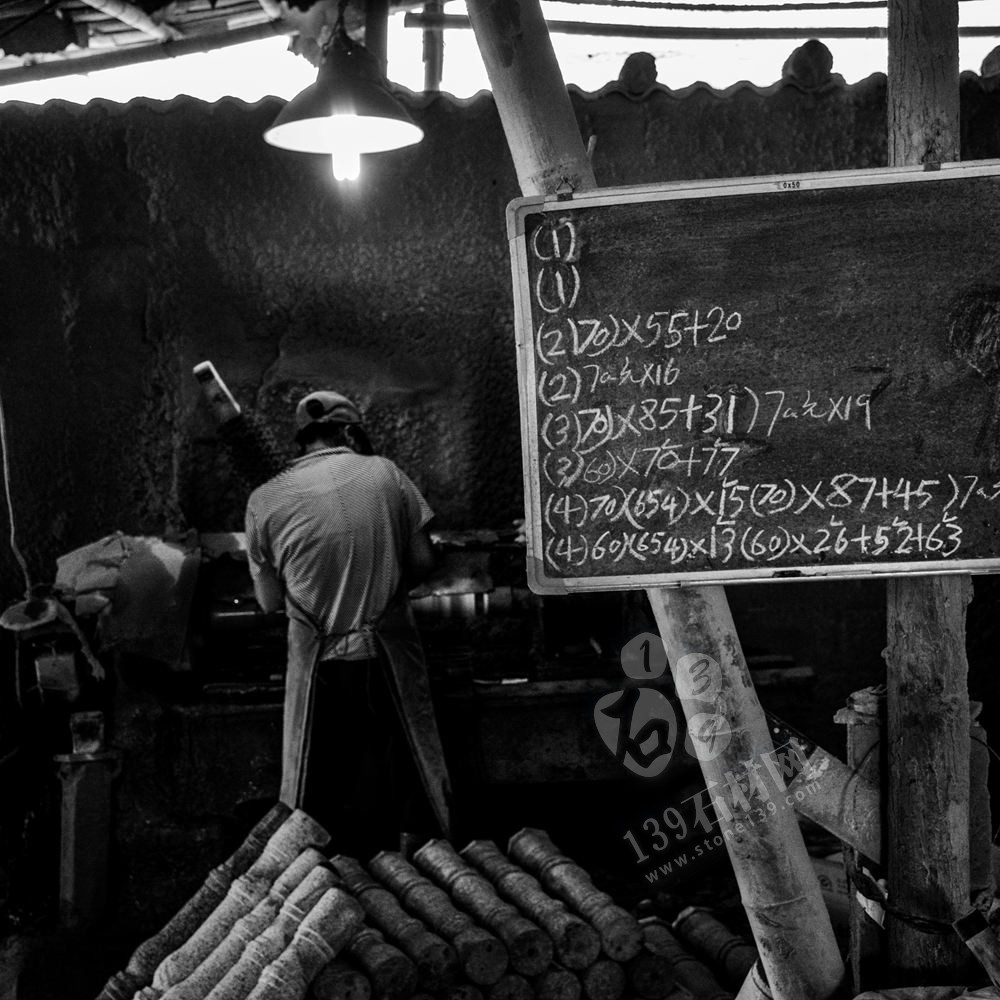 0x50
(1)
(1)
(2)70)×55+20
(2) ×16
(3)70)×85+31) ×19
(3)60)×70+77
(4)70)(654)×15(70)×87+45)
(4)60)(654)×13(60)×26+52+63
139
石
139石材网
www.stone139.com